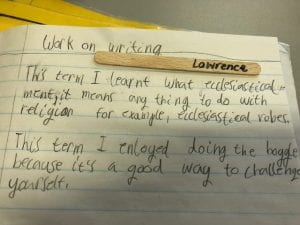 Work on writing
Lawrence
This term I learnt what ecclesiastical =
ment, it means any thing to do with
religion for example, ecclesiastical robes.
This term I enloyed doing the boggle
because it's a good way to challenge
yourself.